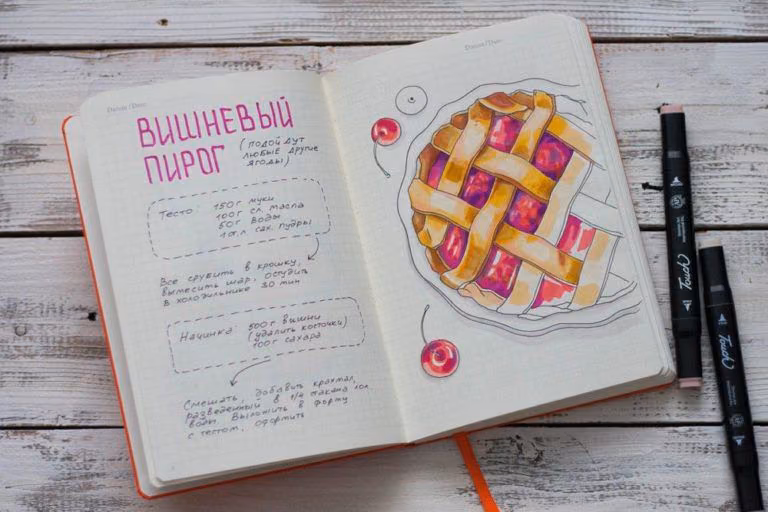 Datum / Date:
Datum / Date:
ВИШНЕВЫЙ
ПИРОГ
(подойдут
любые другие
ягоды)
Тесто: 150 г муки
100 г сл. масла
50 г воды
1 ст.л сах. пудры
Все срубить в крошку,
вымесить шар, остудить
в холодильнике 30 мин
Начинка: 500 г вишни
(удалить косточки)
100 г сахара
Смешать, добавить крахмал,
разведенный в 1/4 стакана хол
воды. Выложить в форму
с тестом, оформить
Touch
Touch